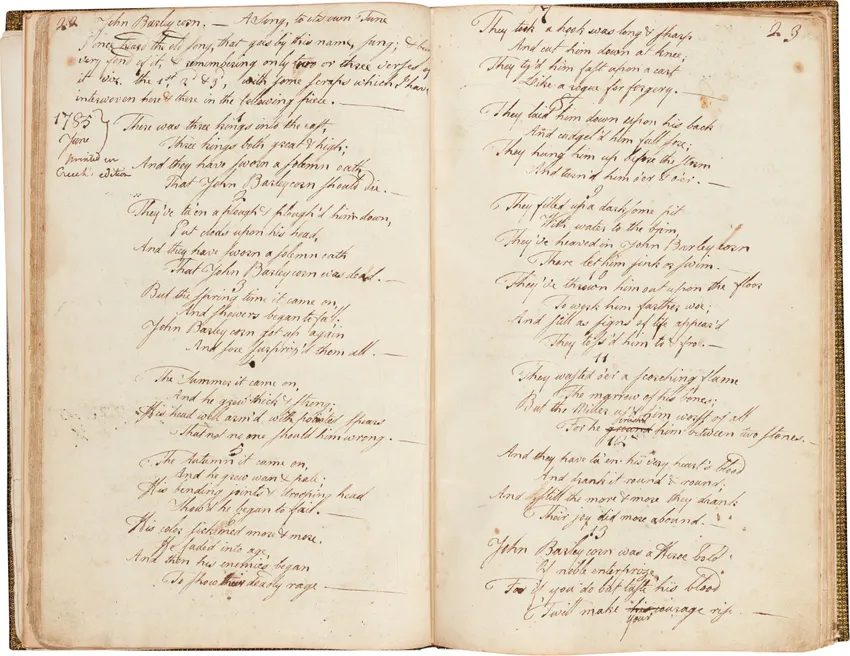 22
John Barleycorn. — A Song, to its own Tune
I once heard the old song, that goes by this name, sung; & being
very fond of it, & remembering only two or three verses of
it viz. the 1st 2d & 3d, with some scraps which I have
interwoven here & there in the following piece. —
1785
June
printed in
Creech's edition
There was three kings into the east,
Three kings both great & high;
And they have sworn a solemn oath
That John Barleycorn should die. —
2
They've ta'en a plough & plough'd him down,
Put clods upon his head,
And they have sworn a solemn oath
That John Barleycorn was dead. —
3
But the spring time it came on,
And showers began to fall.
John Barleycorn got up again
And sore surpris'd them all. —
The Summer it came on,
And he grew thick & strong;
His head well arm'd with pointed spears
That no one should him wrong. —
5
The Autumn it came on,
And he grew wan & pale;
His bending joints & drooping head
Show'd he began to fail. —
6
His color sickened more & more.
He faded into age
And then his enemies began
To show their deadly rage —
23
7
They took a hook was long & sharp
And cut him down at knee;
They ty'd him fast upon a cart
Like a rogue for forgery. —
8
They laid him down upon his back
And cudgel'd him full sore;
They hung him up before the storm
And turn'd him o'er & o'er. —
9
They filled up a darksome pit
With water to the brim,
They've heaved in John Barleycorn
There let him sink or swim. —
10
They've thrown him out upon the floor
To work him farther woe;
And still as signs of life appear'd
They toss'd him to & fro. —
11
They wasted o'er a scorching flame
The marrow of his bones;
But the Miller us'd him worst of all
For he ground him between two stones. —
12
And they have ta'en his very heart's blood
And drank it round & round.
And still the more & more they drank
Their joy did more abound. —
13
John Barleycorn was a Heroe bold
Of noble enterprize
For if you do but taste his blood
'Twill make his courage rise —
your